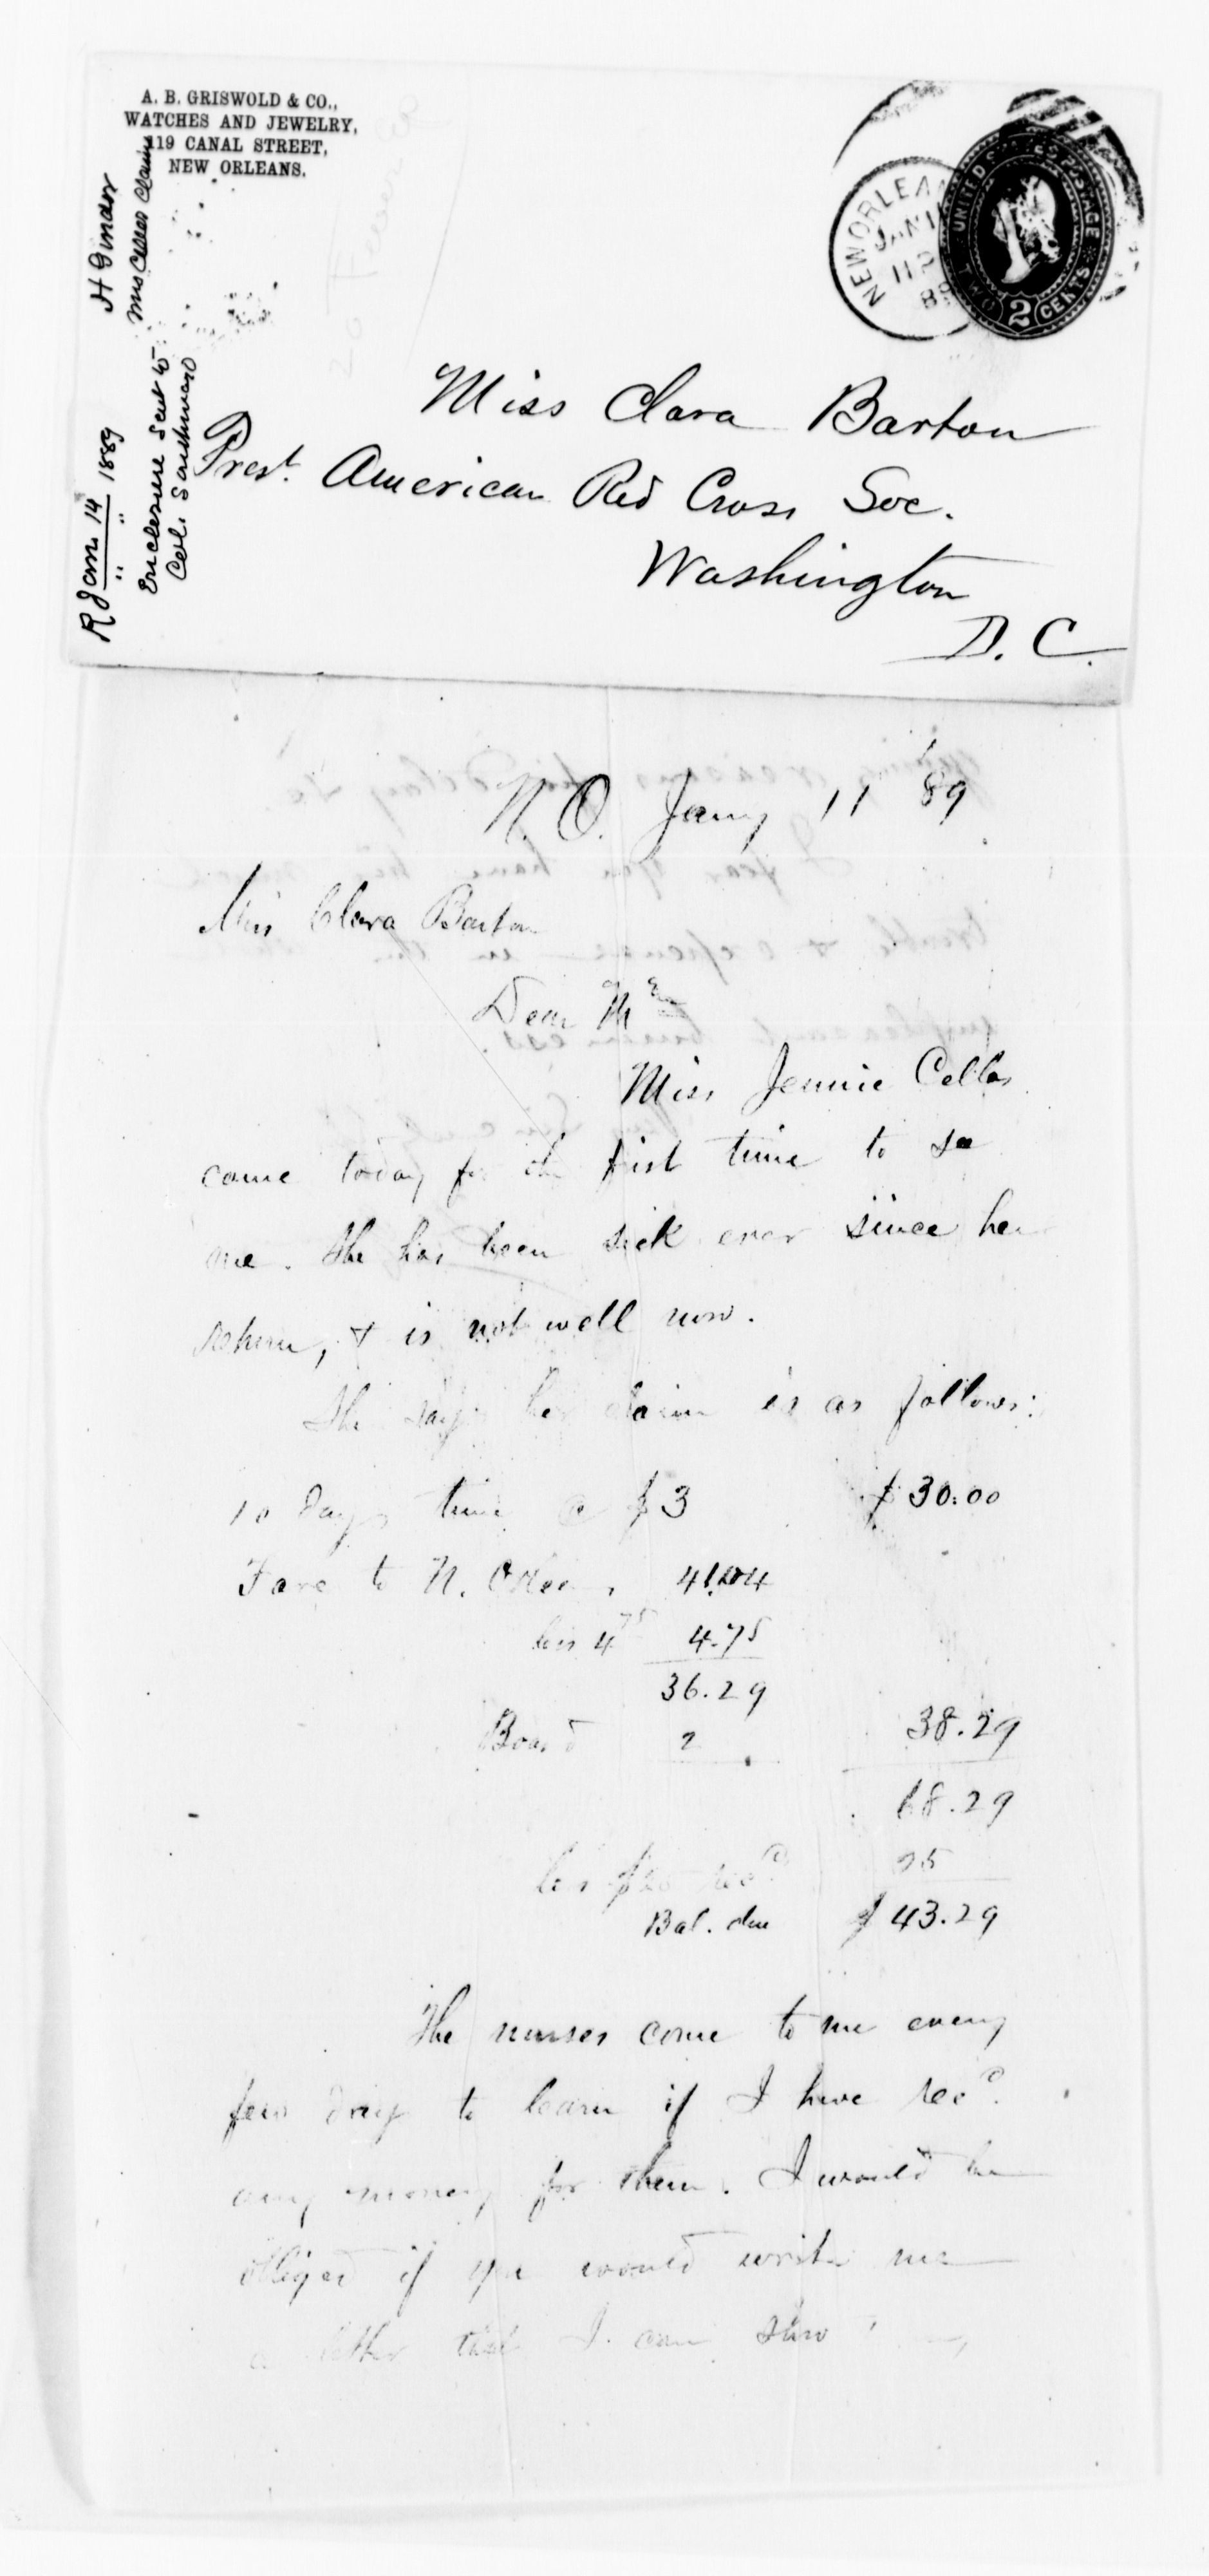 A. B. GRISWOLD & CO.,
WATCHES AND JEWELRY,
119 CANAL STREET,
NEW ORLEANS.
R Jan. 14 1889
" "
H Ginder
Enclosure sent to
Col. Southmayd
Miss Cellos Claim
NEW ORLEAN
JAN 1
UNITED STATES POSTAGE
TWO 2 CENTS
Miss Clara Barton
Prest. American Red Cross Soc.
Washington
D. C.
N. O. Jany 11 '89
Miss Clara Barton
Dear Mm
Miss Jennie Cellos
came today for the first time to see
me. She has been sick ever since her
return, & is not well now.
She says her claim is as follows:
10 days time @ $3 $30.00
Fare to N. Orleans 41.04
less 4 75 4.75
36.29
Board 2 38.29
68.29
less $25 recd. 25
Bal. due $43.29
The nurses come to me every
few days to learn if I have recd.
any money for them. I would be
obliged if you would write me
a letter that I can show